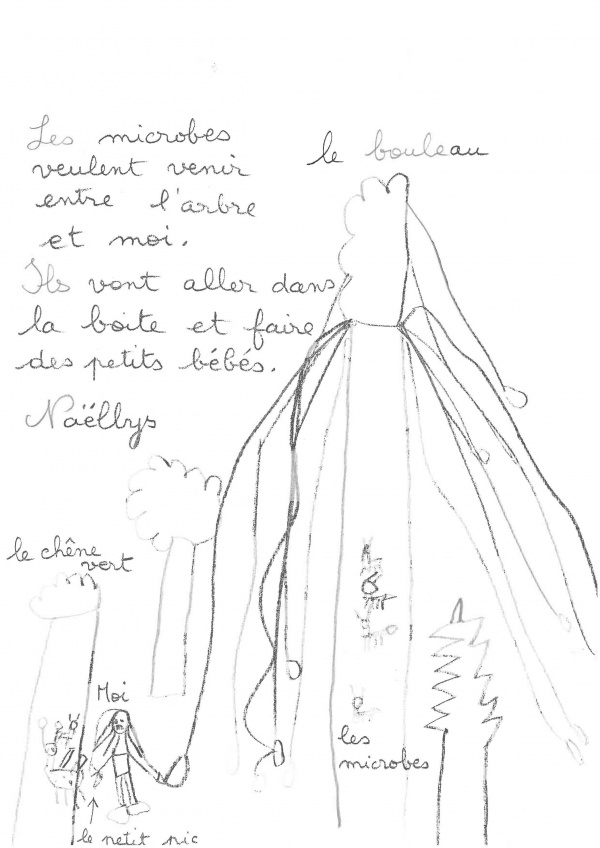 Les microbes
veulent venir
entre l'arbre
et moi.
Ils vont aller dans
la boite et faire
des petits bébés.
Naëllys
le bouleau
le chêne
vert
Moi
les
microbes
le petit pic